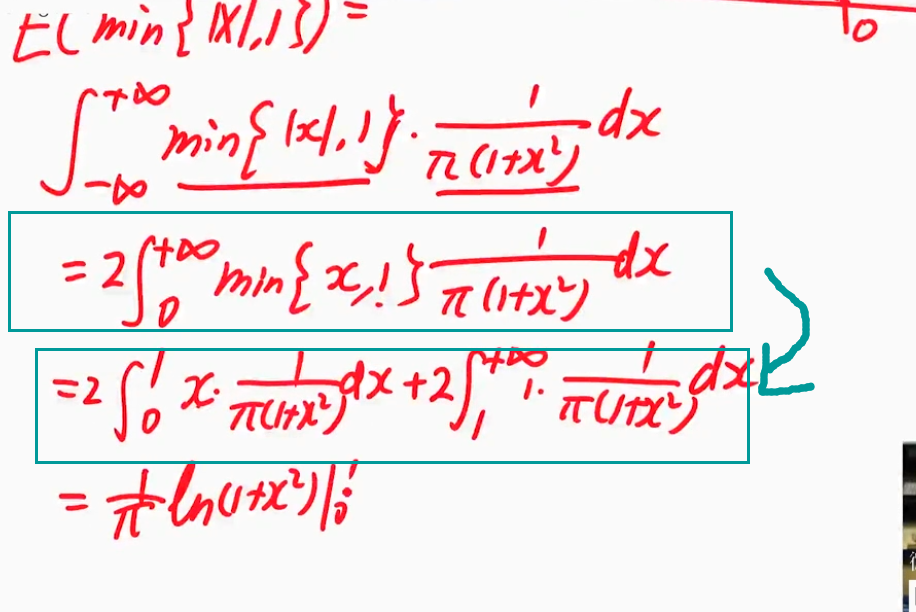 E(min{|x|,1})=
0
∫_{-∞}^{+∞} min{|x|,1}·\frac{1}{π(1+x²)}dx
=2∫_0^{+∞} min{x,1}\frac{1}{π(1+x²)}dx
=2∫_0^1 x·\frac{1}{π(1+x²)}dx+2∫_1^{+∞} 1·\frac{1}{π(1+x²)}dx
=\frac{1}{π}ln(1+x²)|_0^1